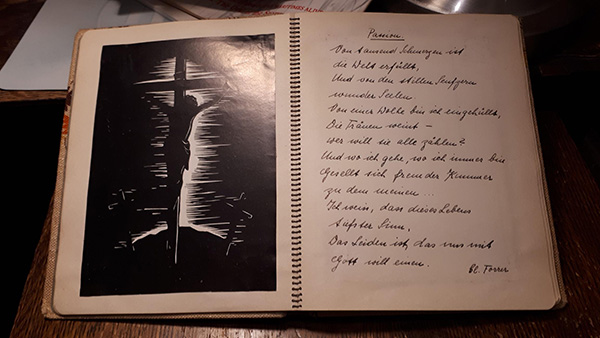 Passion.
Von tausend Schmerzen ist
die Welt erfüllt,
Und von den stillen Seufzern
wunder Seelen.
Von einer Wolke bin ich eingehüllt,
Die Tränen weint –
wer will sie alle zählen?
Und wo ich gehe, wo ich immer bin
Gesellt sich fremder Kummer
zu dem meinen ...
Ich weiss, dass dieses Lebens
tiefster Sinn,
Das Leiden ist, das uns mit
Gott will einen.
Forrer